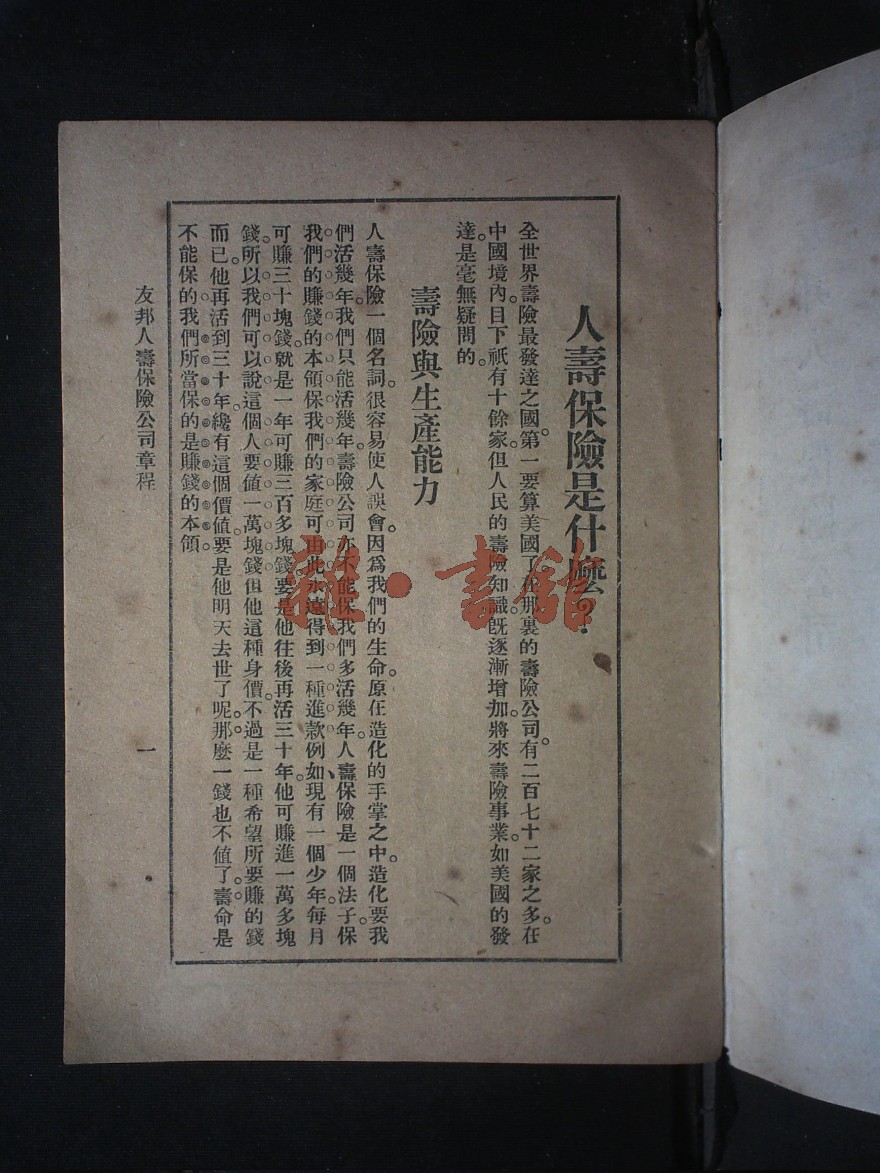 人壽保險是什麼？
全世界壽險最發達之國。第一要算美國了。在那裏的壽險公司。有二百七十二家之多。在
中國境內。目下祇有十餘家。但人民的壽險知識。既逐漸增加。將來壽險事業。如美國的發
達。是毫無疑問的。
壽險與生產能力
人壽保險一個名詞。很容易使人誤會。因爲我們的生命。原在造化的手掌之中。造化要我
們活幾年。我們只能活幾年。壽險公司亦不能保我們多活幾年。人壽保險是一個法子。保
我們的賺錢的本領保我們的家庭可由此永遠得到一種進款例如、現有一個少年。每月
可賺三十塊錢。就是一年可賺三百多塊錢。要是他往後再活三十年。他可賺進一萬多塊
錢。所以我們可以說這個人要値一萬塊錢但他這種身價。不過是一種希望所要賺的錢
而已。他再活到三十年。纔有這個價値。要是他明天去世了呢。那麼一錢也不値了。壽命是
不能保的。我們所當保的是賺錢的本領。
友邦人壽保險公司章程
一
雜·書館